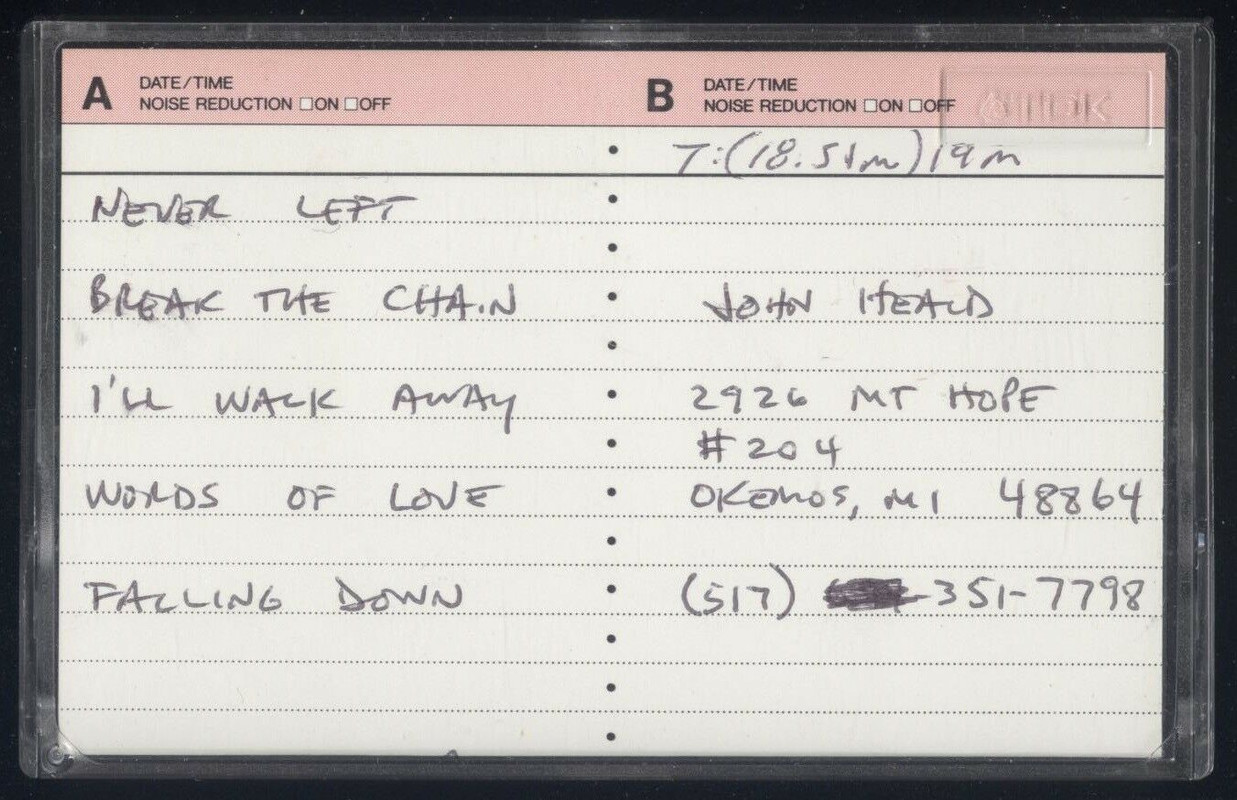 A DATE/TIME
NOISE REDUCTION □ON □OFF
B DATE/TIME
NOISE REDUCTION □ON □OFF
T:(18.51m)19m
NEVER LEFT
BREAK THE CHAIN
JOHN HEALD
I'LL WALK AWAY
2926 MT HOPE
#204
WORDS OF LOVE
OKEMOS, MI 48864
FALLING DOWN
(517) -351-7798